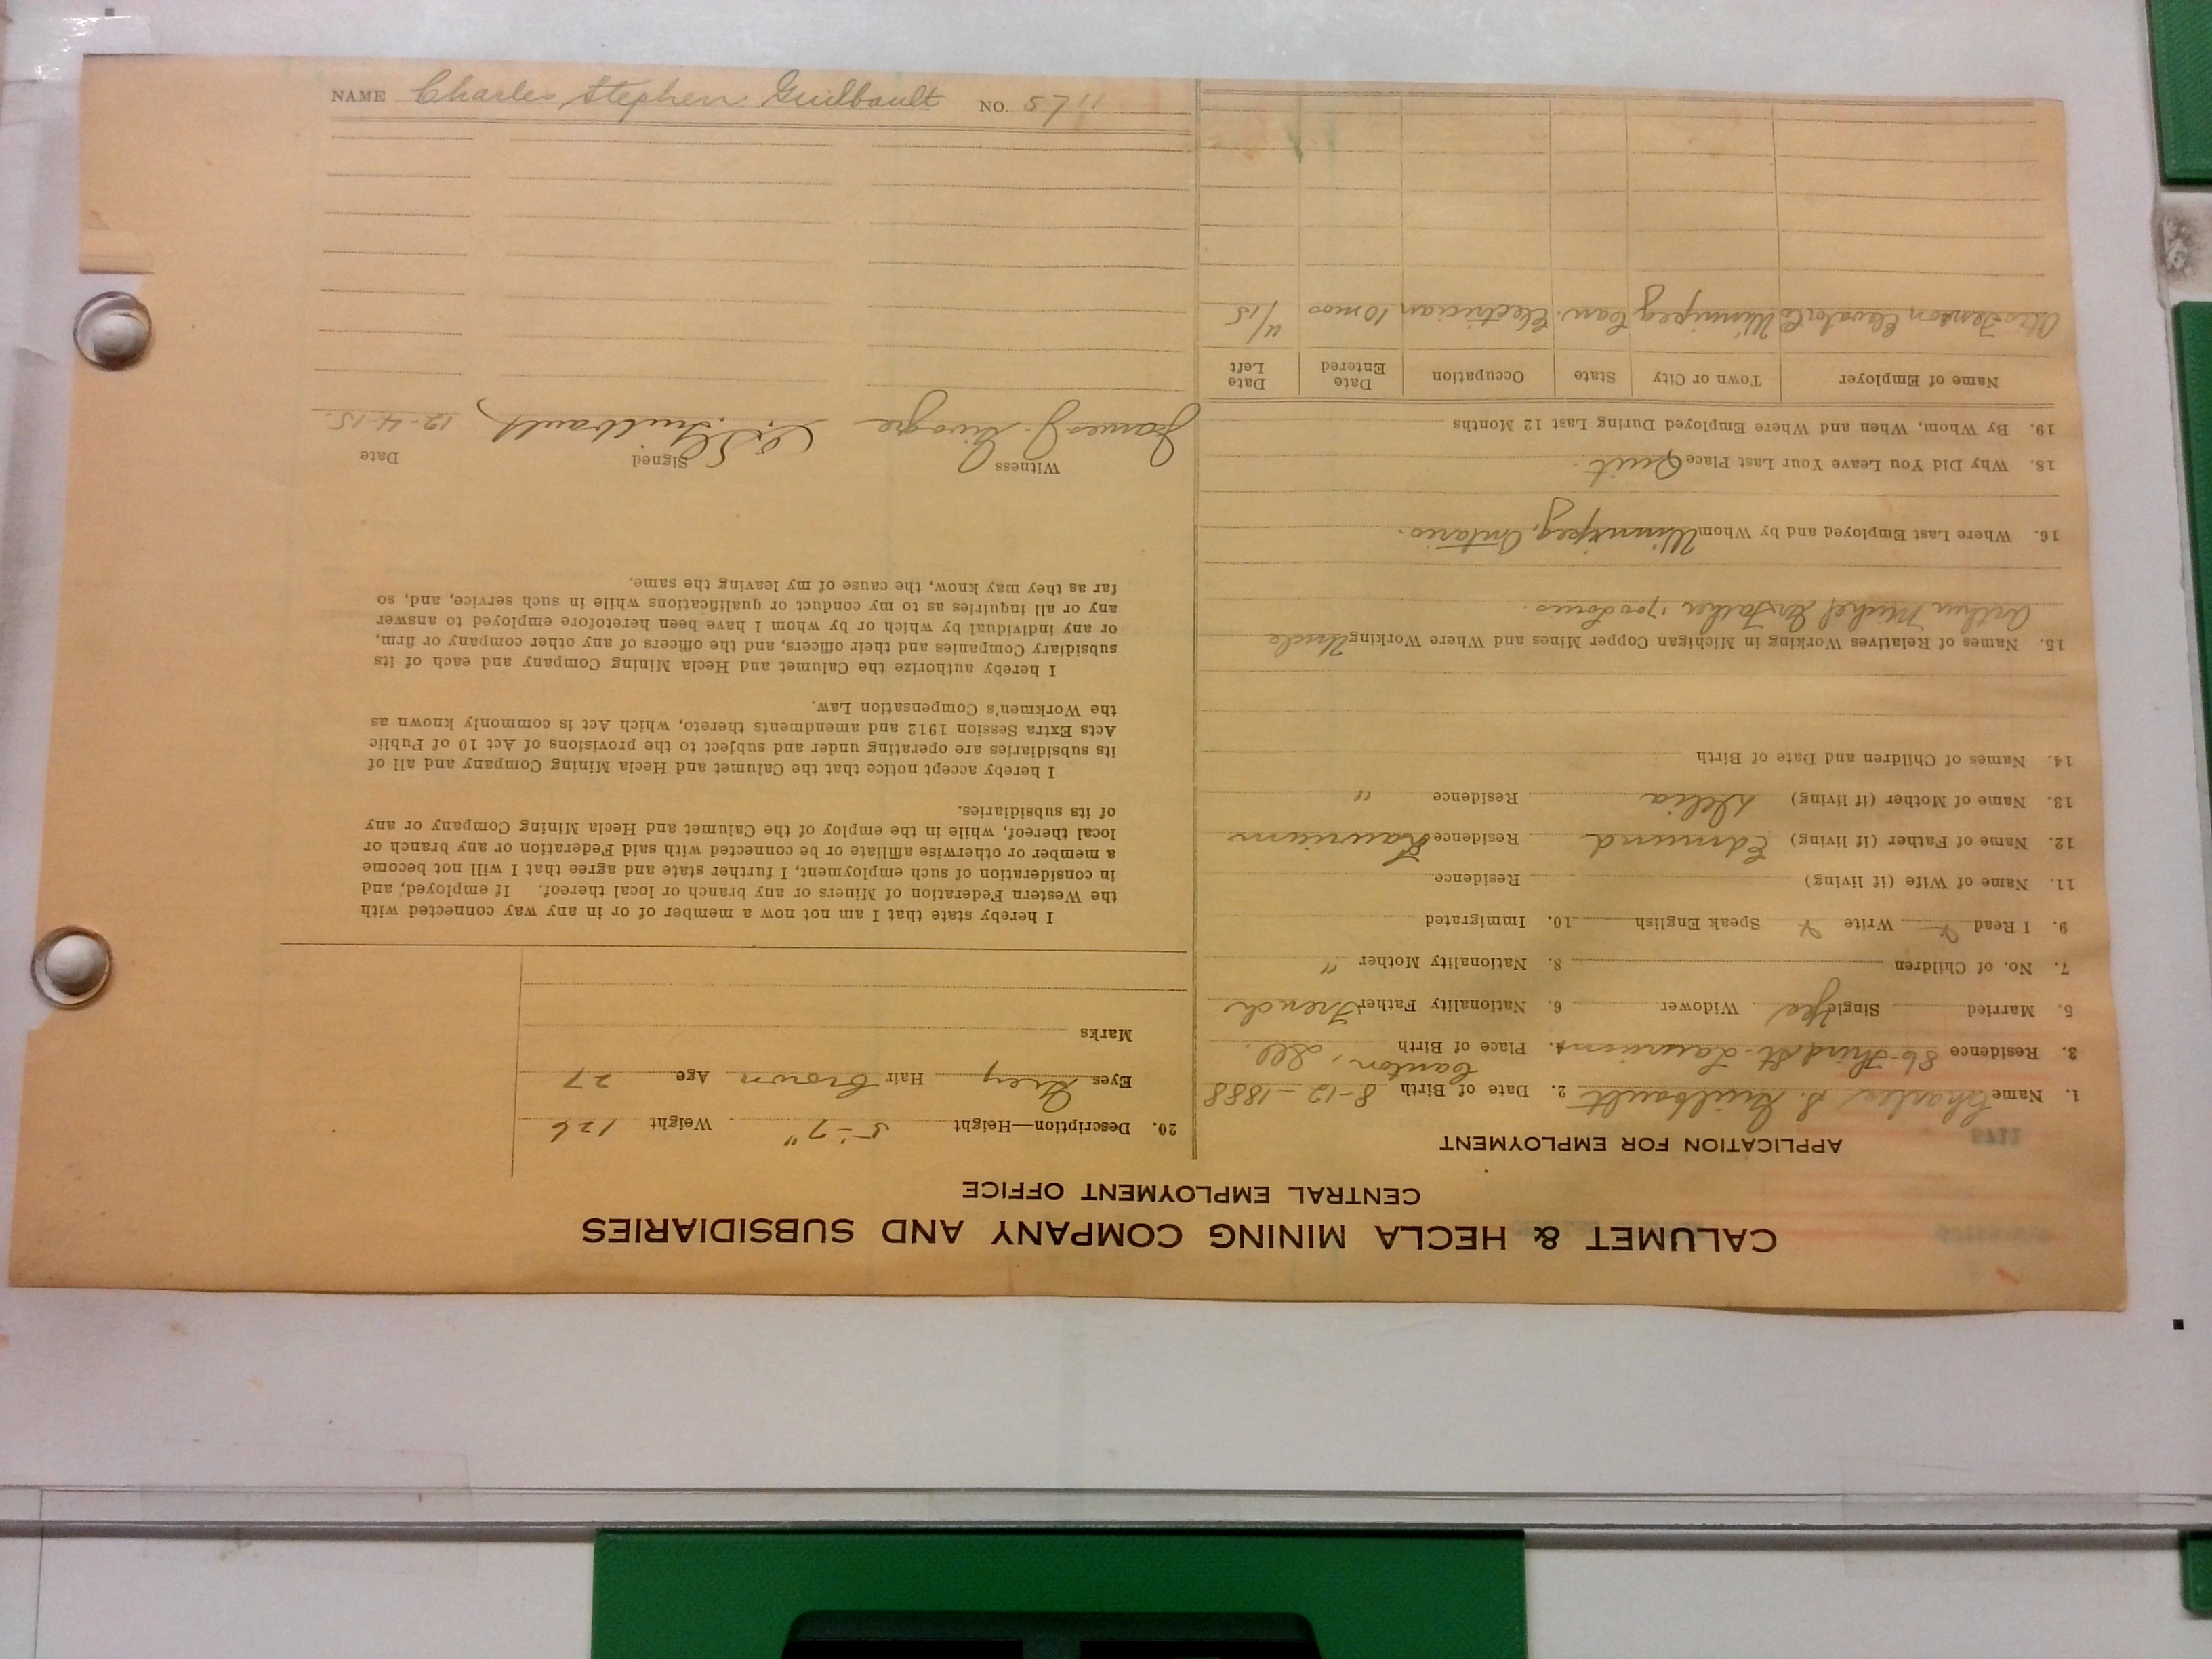 CALUMET & HECLA MINING COMPANY AND SUBSIDIARIES
CENTRAL EMPLOYMENT OFFICE
APPLICATION FOR EMPLOYMENT
1. Name Charles S. Guilbault 2. Date of Birth 8-12-1888
3. Residence 86-Third St. Laurium 4. Place of Birth Canton, Ill.
5. Married Single Yes Widower 6. Nationality Father French
7. No. of Children 8. Nationality Mother "
9. I Read Write Speak English 10. Immigrated
11. Name of Wife (if living) Residence
12. Name of Father (if living) Edmund Residence Laurium
13. Name of Mother (if living) Delia Residence "
14. Names of Children and Date of Birth
15. Names of Relatives Working in Michigan Copper Mines and Where Working Uncle
Arthur Michel
16. Where Last Employed and by Whom Winnipeg, Ontario.
18. Why Did You Leave Your Last Place Quit.
19. By Whom, When and Where Employed During Last 12 Months
Name of Employer Town or City State Occupation Date Entered Date Left
Otis-Fenson Elevator Co Winnipeg Can. Electrician 10 mos 4/15
20. Description—Height 5'-7" Weight 126
Eyes Grey Hair Brown Age 27
Marks
I hereby state that I am not now a member of or in any way connected with
the Western Federation of Miners or any branch or local thereof. If employed, and
in consideration of such employment, I further state and agree that I will not become
a member or otherwise affiliate or be connected with said Federation or any branch or
local thereof, while in the employ of the Calumet and Hecla Mining Company or any
of its subsidiaries.
I hereby accept notice that the Calumet and Hecla Mining Company and all of
its subsidiaries are operating under and subject to the provisions of Act 10 of Public
Acts Extra Session 1912 and amendments thereto, which Act is commonly known as
the Workmen's Compensation Law.
I hereby authorize the Calumet and Hecla Mining Company and each of its
subsidiary Companies and their officers, and the officers of any other company or firm,
or any individual by which or by whom I have been heretofore employed to answer
any or all inquiries as to my conduct or qualifications while in such service, and, so
far as they may know, the cause of my leaving the same.
Witness Signed Date
James J. C. S. Guilbault 12-4-15.
NAME Charles Stephen Guilbault NO. 5711